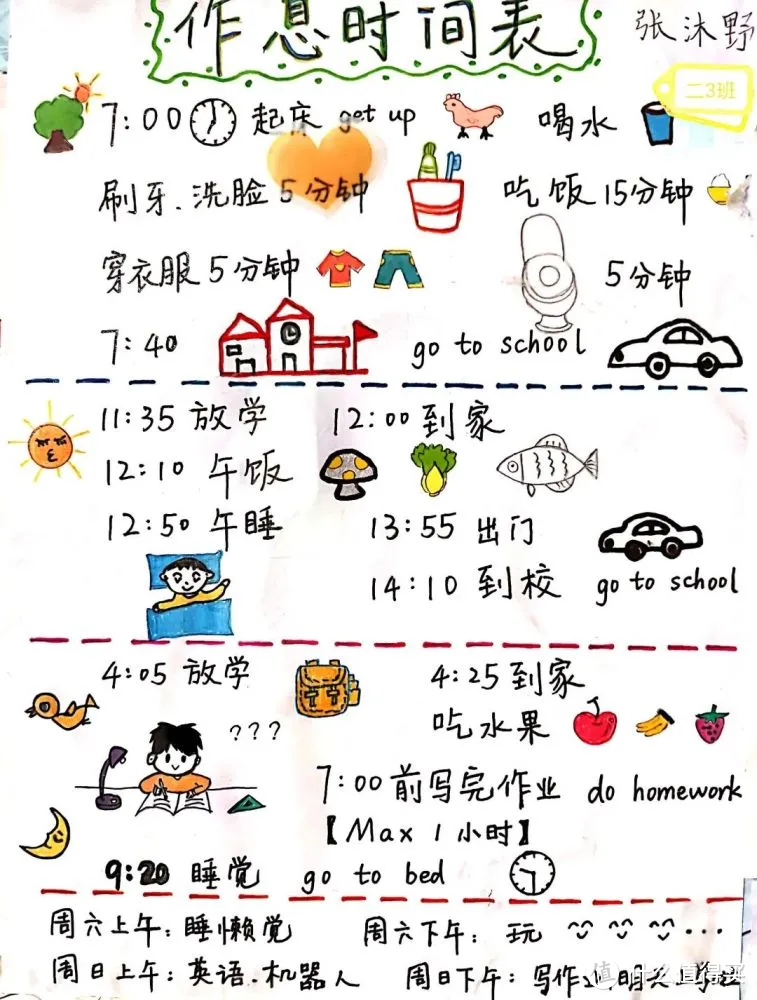 作息时间表 张沐野
二3班
7:00 起床 get up 喝水
刷牙.洗脸5分钟 吃饭15分钟
穿衣服5分钟 5分钟
7:40 go to school
11:35 放学 12:00 到家
12:10 午饭
12:50 午睡 13:55 出门
14:10 到校 go to school
4:05 放学 4:25 到家
??? 吃水果
7:00前写完作业 do homework
【Max 1小时】
9:20 睡觉 go to bed
周六上午:睡懒觉 周六下午:玩 ...
周日上午:英语.机器人 周日下午:写作业明天
值 什么值得买